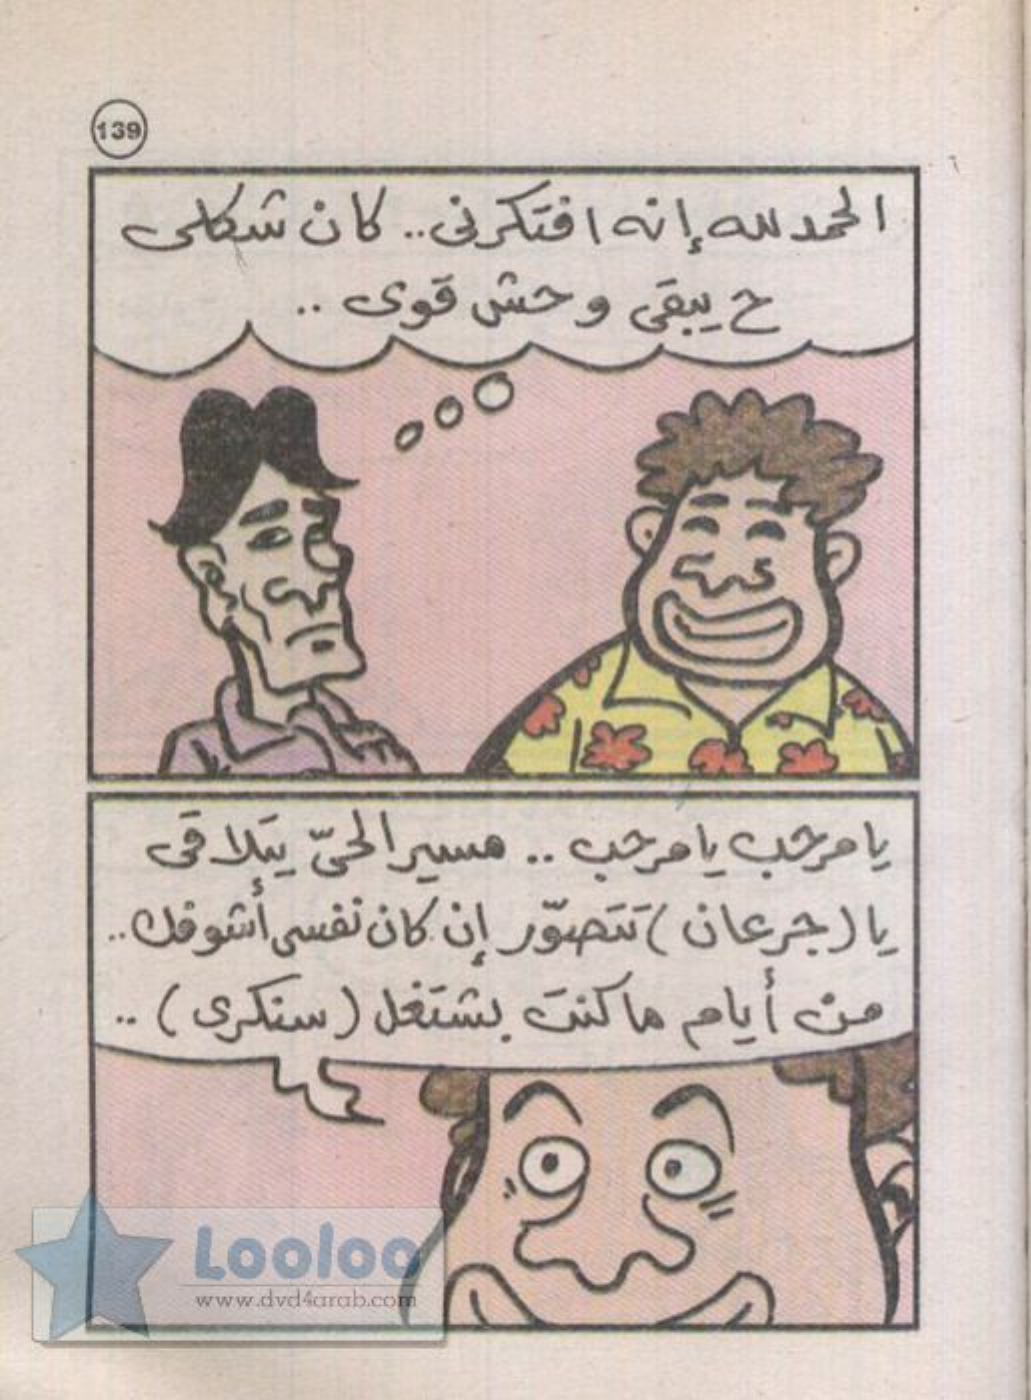 139
الحمد لله إنه افتكرنى.. كان شكلى
ح يبقى وحش قوى ..
يا مرحب يا مرحب .. مسير الحىّ يتلاقى
يا (جرعان) تتصوّر إن كان نفسى أشوفك..
من أيام ما كنت بشتغل (سنكرى) ..
Looloo
www.dvd4arab.com